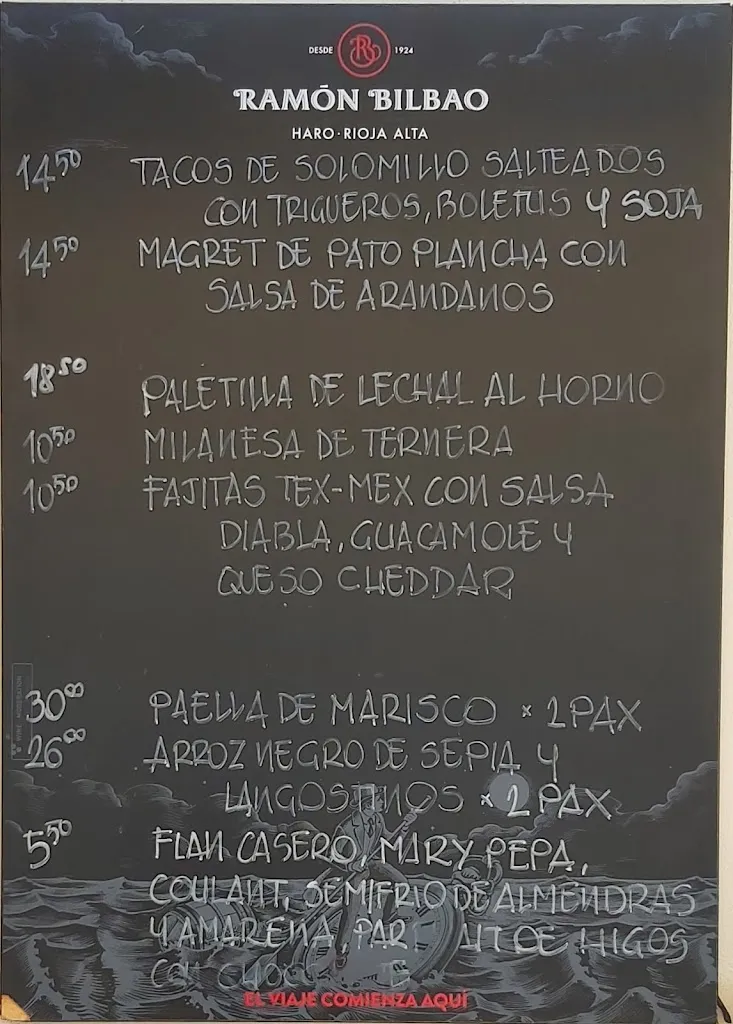 DESDE 1924
RAMÓN BILBAO
HARO · RIOJA ALTA
14.50 TACOS DE SOLOMILLO SALTEADOS
CON TRIGUEROS, BOLETUS Y SOJA
14.50 MAGRET DE PATO PLANCHA CON
SALSA DE ARANDANOS
18.50 PALETILLA DE LECHAL AL HORNO
10.50 MILANESA DE TERNERA
10.50 FAJITAS TEX-MEX CON SALSA
DIABLA, GUACAMOLE Y
QUESO CHEDDAR
30.00 PAELLA DE MARISCO × 2 PAX
26.00 ARROZ NEGRO DE SEPIA Y
LANGOSTINOS × 2 PAX
5.50 FLAN CASERO, MARY PEPA,
COULANT, SEMIFRIO DE ALMENDRAS
Y AMARENA, PAR AIT DE HIGOS
CON CHOC TE
EL VIAJE COMIENZA AQUÍ
WINE in MODERATION